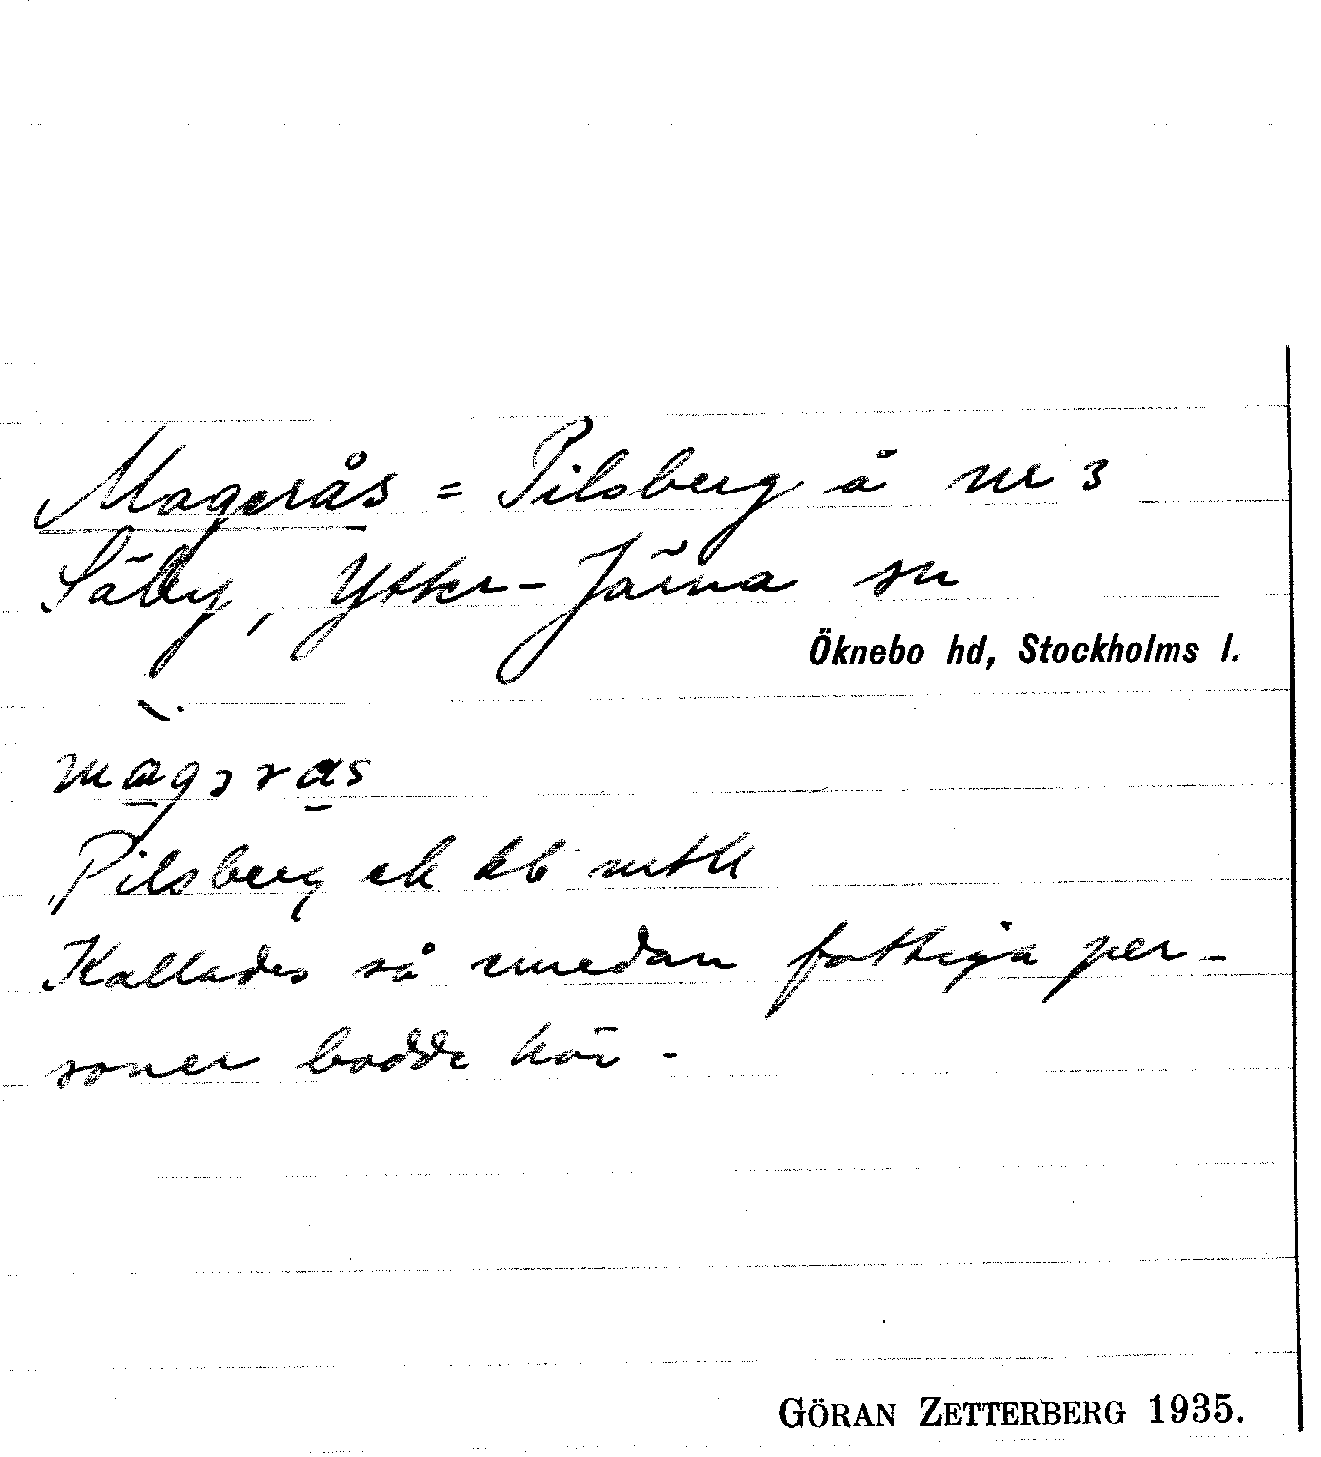 Magerås = Pilsberg å nr 3
Säby, Ytter-Järna sn
Öknebo hd, Stockholms l.
Pilsberg ek kb
Kallades så emedan fattiga per-
soner bodde här -
GÖRAN ZETTERBERG 1935.